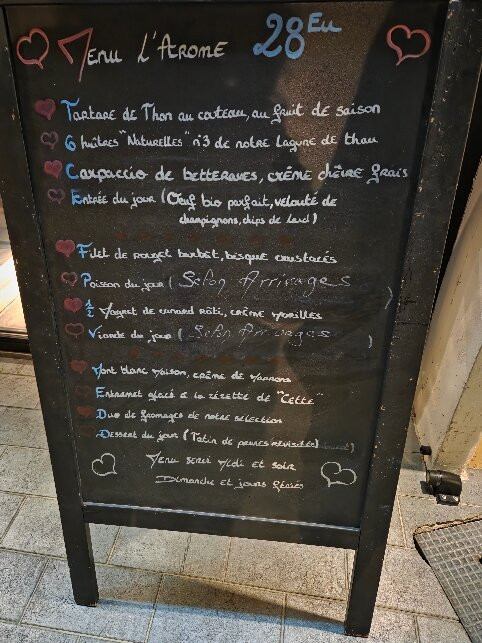 Menu L'Arome 28 Eu
Tartare de Thon au couteau, au fruit de saison
6 huîtres "Naturelles" n°3 de notre Lagune de thau
Carpaccio de betteraves, crème chèvre frais
Entrée du jour (Oeuf bio parfait, velouté de
champignons, chips de lard)
Filet de rouget barbet, bisque crustacés
Poisson du jour ( Selon Arrivages )
1/2 Magret de canard rôti, crème morilles
Viande du jour ( Selon Arrivages )
Mont blanc maison, crème de marrons
Entremet glacé à la zézette de "Cette"
Duo de fromages de notre sélection
Dessert du jour (Tatin de poires revisitée)
Menu servi Midi et soir
Dimanche et jours fériés